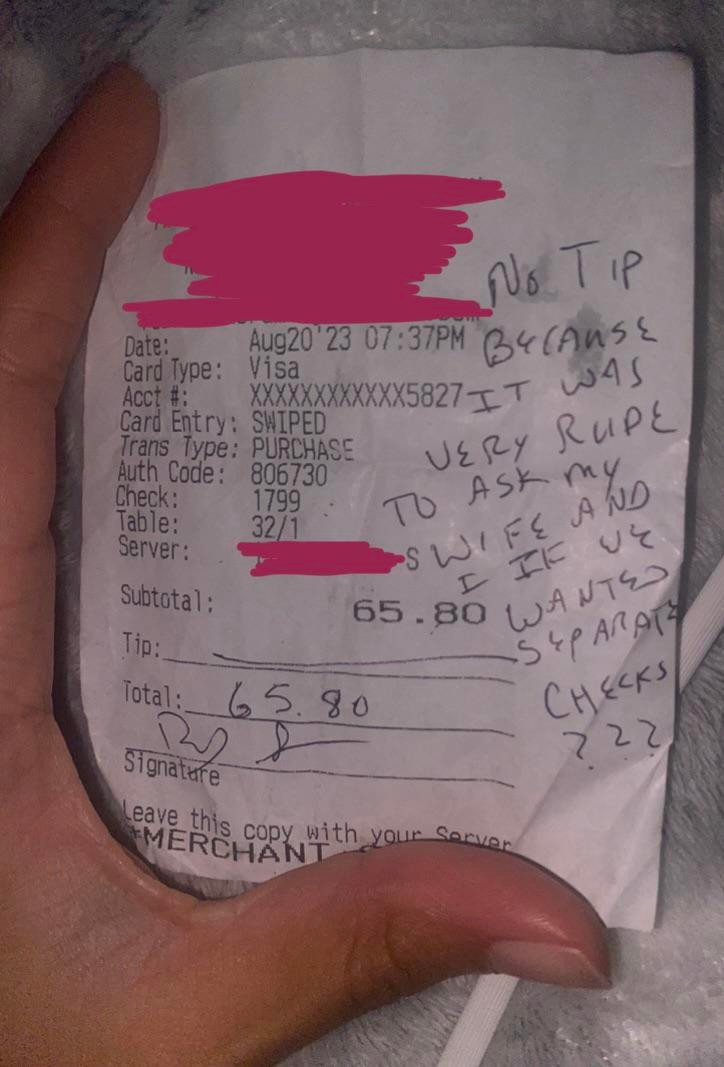 Date: Aug20'23 07:37PM
Card Type: Visa
Acct #: XXXXXXXXXXXX5827
Card Entry: SWIPED
Trans Type: PURCHASE
Auth Code: 806730
Check: 1799
Table: 32/1
Server: S
Subtotal: 65.80
Tip:
Total: 65.80
Signature
Leave this copy with your Server
*MERCHANT
NO TIP
BECAUSE
IT WAS
VERY RUDE
TO ASK MY
WIFE AND
I IF WE
WANTED
SEPARATE
CHECKS
???